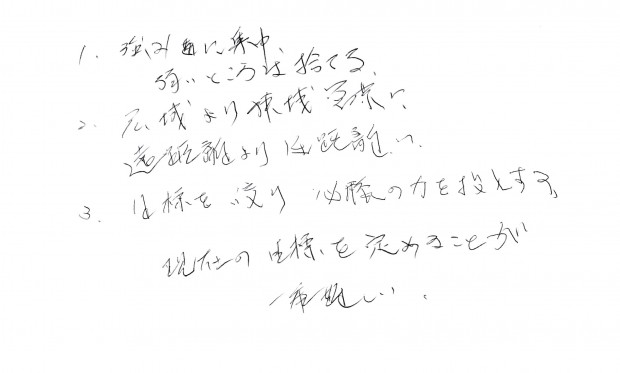 1. 強み面に集中、
弱いところは捨てる、
2. 広域より狭域営業に
遠距離より近距離に、
3. 目標を絞り 必勝の力を投入する、
現在の目標を定めることが
一番難しい.